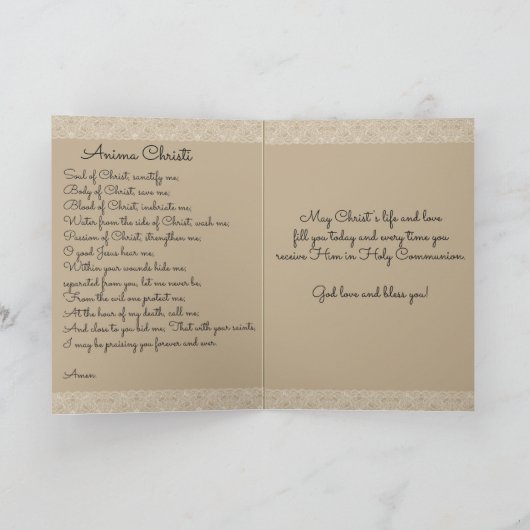 Anima Christi
Soul of Christ, sanctify me;
Body of Christ, save me;
Blood of Christ, inebriate me;
Water from the side of Christ, wash me;
Passion of Christ, strengthen me;
O good Jesus hear me;
Within your wounds hide me;
separated from you, let me never be;
From the evil one protect me;
At the hour of my death, call me;
And close to you bid me; That with your saints,
I may be praising you forever and ever.
Amen.
May Christ's life and love
fill you today and every time you
receive Him in Holy Communion.
God love and bless you!